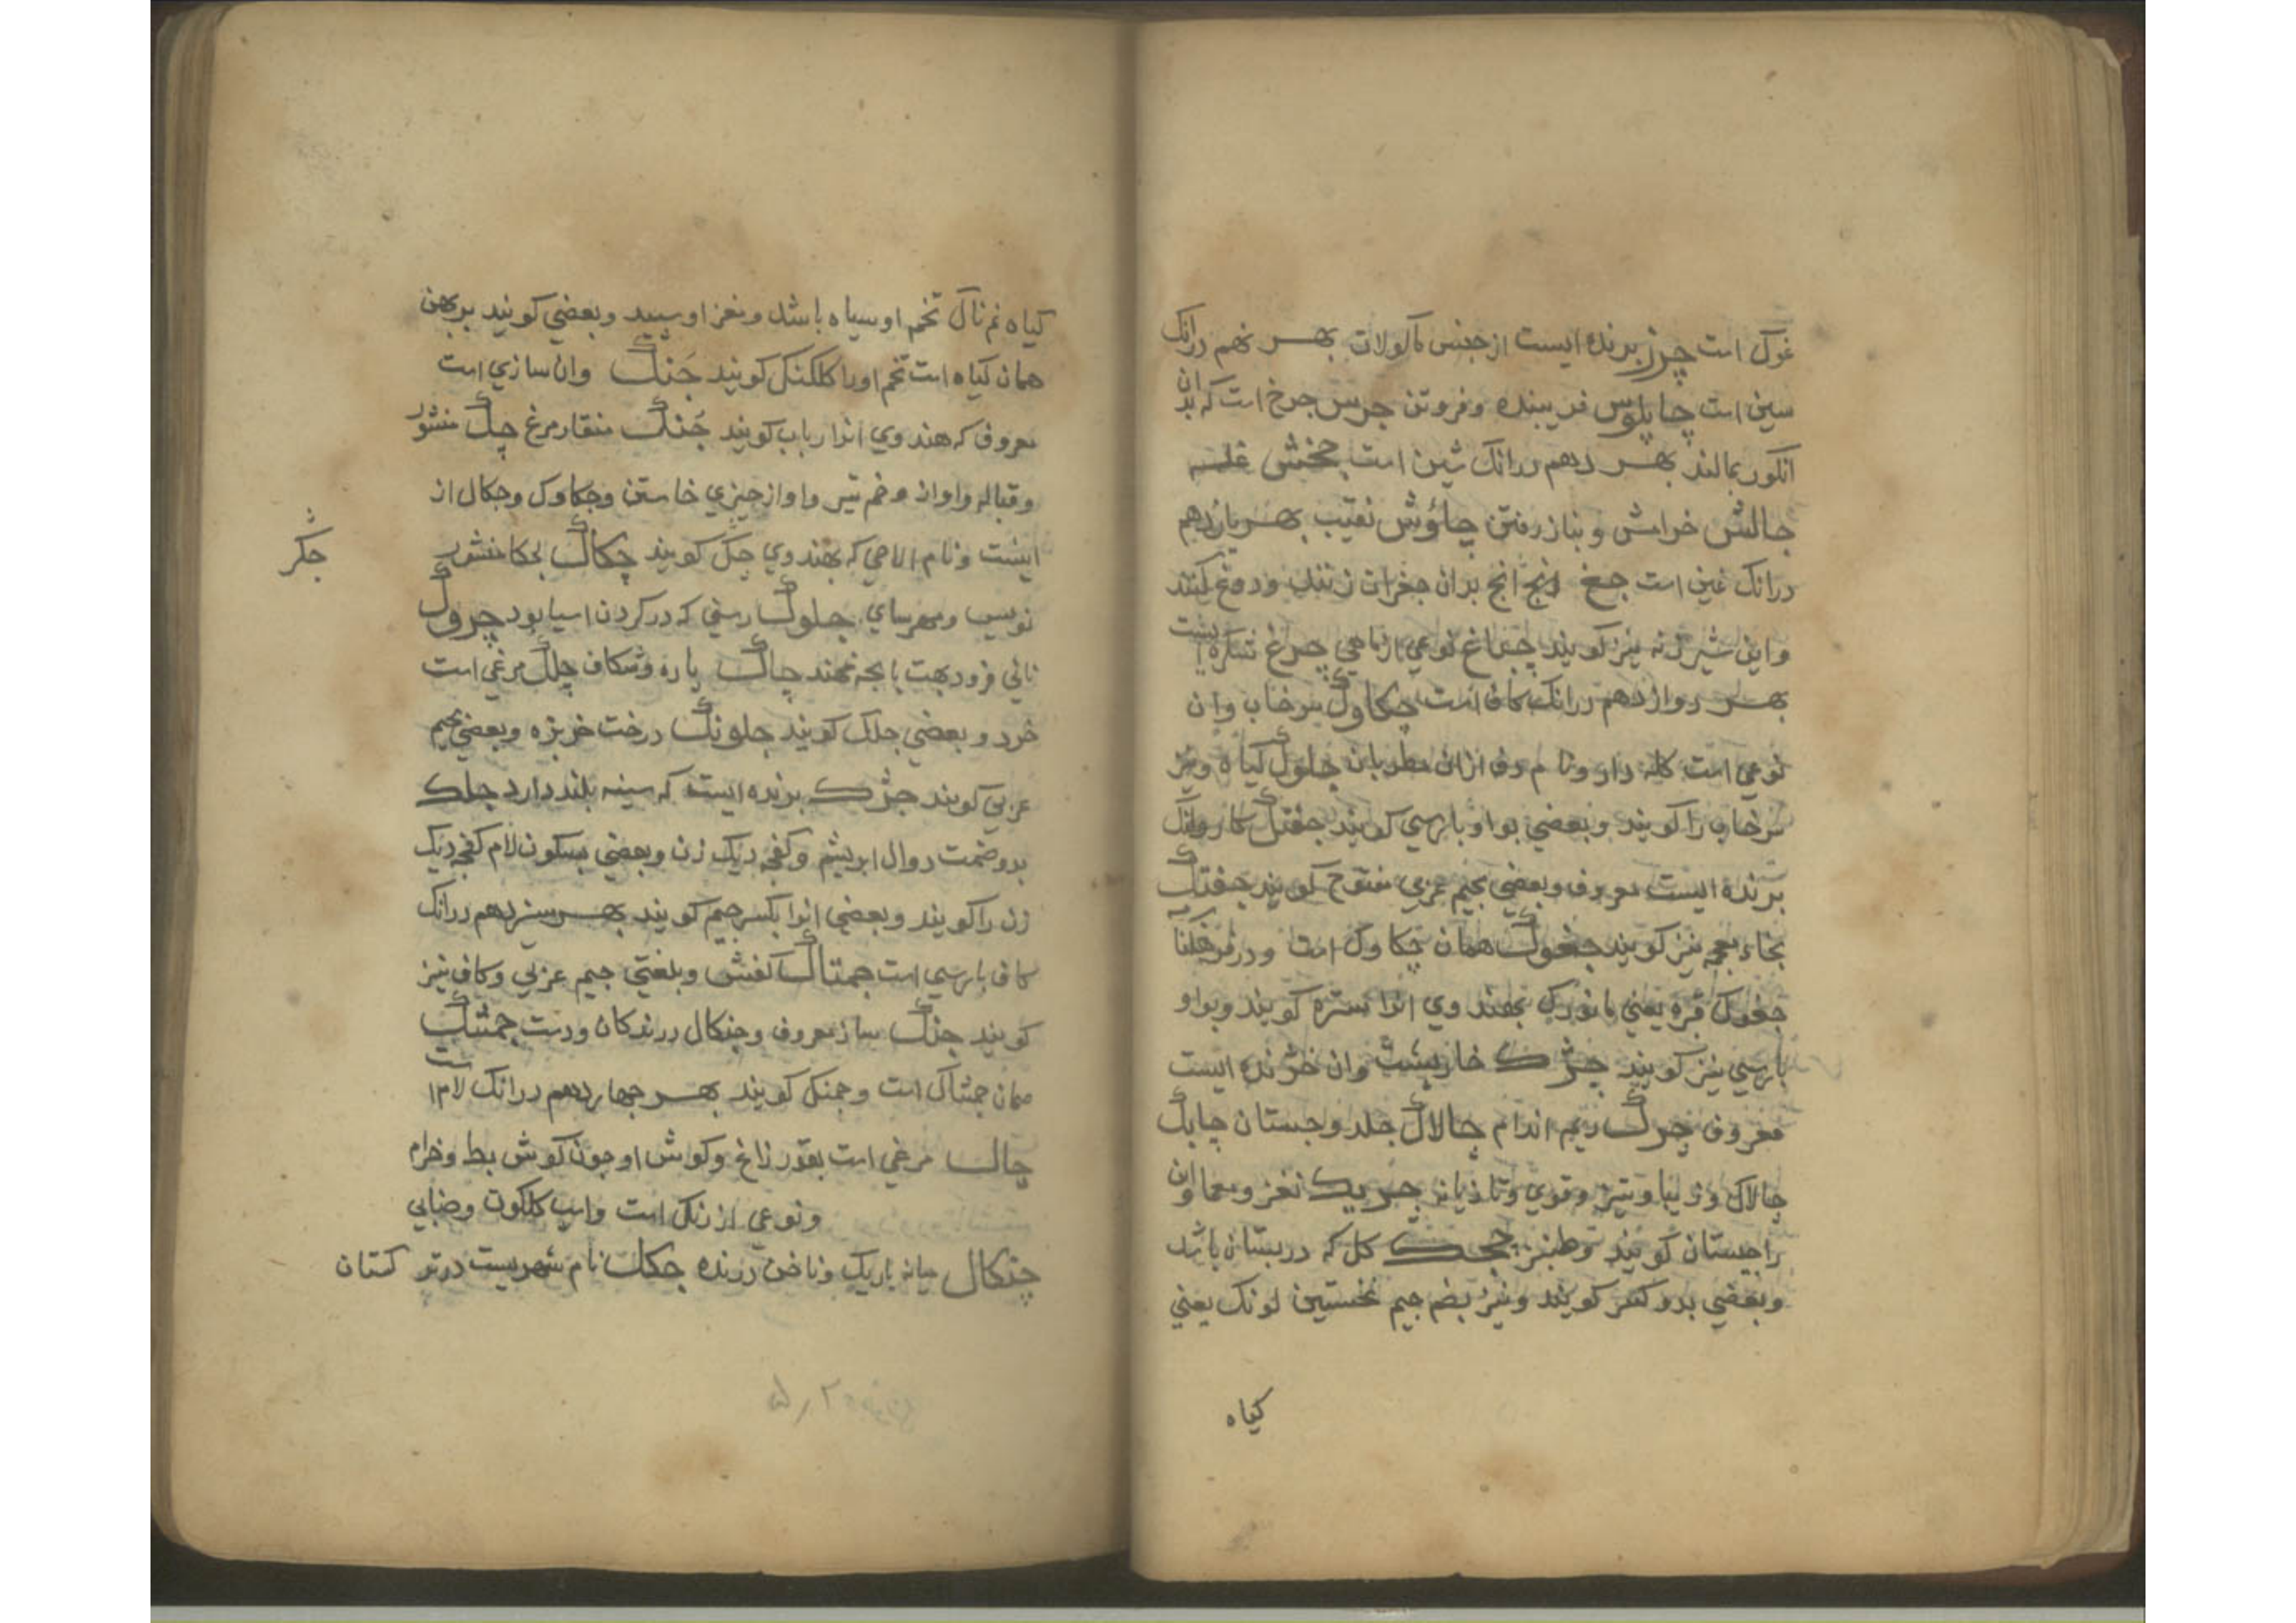 غوک است چرز برنده ایست از جنس ماکولات بهر نهم درانک
سین است چابلوس فریبنده و فروتن چرس چرخ است که بدان
انکور بمالند بهر دهم درانک شین است چخش غلبه
چالش خرامش و بناز رفتن چاؤش نقیب بهر یازدهم
درانک غین است چغ انج بران جغرات زنند و دوغ کنند
و این شیرزنه نیز کویند چغاغ نوعی از ماهی چرغ شکره ایست
بهر دوازدهم درانک کاف است چکاوک سرخاب وان
نوعی است کله دار و نام دف ازان مطربان چلوک کیاه و نیز
سرخاب را کویند و بعضی بواو بارسی کویند چفتک کاروانک
برنده ایست معروف و بعضی بجیم عربی مفتوح کویند چفتک
بخاء معجمه نیز کویند چغوک همان چکاوک است و در فرخنکنا
چغوک قره یعنی مانورک بهند وی انرا ستره کویند و بواو
بارسی نیز کویند چژک خاربشت وان خزنده ایست
معروف چرک ریم اندام چالاک جلد و جستان چابک
چالاک و زیبا و تیز و قوی و تازیانه چربک نغز و معما وان
را چیستان کویند و طنز چچک کل که در بستان باشد
و بعضی بدو کسر کویند و نیز بضم جیم نخستین لونک یعنی
کیاه
کیاه نم ناک تخم او سیاه باشد و مغز او سبید و بعضی کویند برهن
همان کیاه است تخم اورا کلکنک کویند چَنک وان سازی است
معروف که هندوی انرا رباب کویند چُنک منقار مرغ چک منشور
و قباله و اوان و خم تیر و اواز چیزی خاستن و چکاوک و چکال از
اینست و نام الاحی که بهندوی چکر کویند چکاک لحکا منشور
چکر
نویس و مهرسای چلوک رسنی که در کردن اسیا بود چروک
نانی فرود بهت بابجه نهند چاک باره و شکاف چلک مرغی است
خرد و بعضی جلک کویند چلونک درخت خربزه و بعضی بجیم
عربی کویند چژک برنده ایست که سینه بلند دارد چلک
بدو ضمت دوال ابریشم و کفچه دیک زن و بعضی بسکون لام کفچه دیک
زن را کویند و بعضی انرا بکسر جیم کویند بهر سیزدهم درانک
کاف بارسی است چمتاک کفش و بلغتی جیم عربی و کاف نیز
کویند چنک ساز معروف و چنکال درندکان و دست چمشک
همان چمشاک است و چمنک کویند بهر چهاردهم درانک لام است
چال مرغی است بقدر زاغ و کوش او چون کوش بط و خرام
و نوعی از رنک است و اسب کلکون و ضبابی
چنکال میانه باریک و ناخن درنده چکل نام شهریست در ترکستان